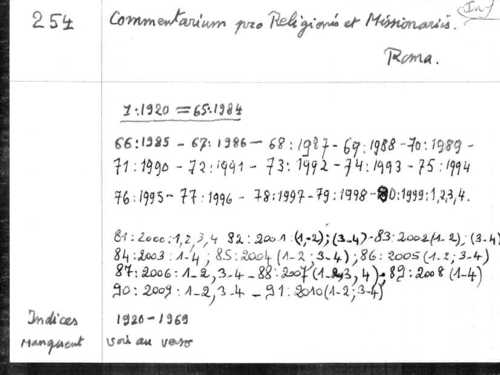 254 Commentarium pro Religionis et Missionariis. (In)
Roma.
1:1920 = 65:1984
66:1985 - 67:1986 - 68:1987 - 69:1988 - 70:1989 -
71:1990 - 72:1991 - 73:1992 - 74:1993 - 75:1994
76:1995 - 77:1996 - 78:1997 - 79:1998 - 80:1999:1,2,3,4.
81:2000:1,2,3,4 82:2001:(1,-2);(3-4)-83:2002(1-2);(3-4)
84:2003:1-4; 85:2004(1-2;3-4);86:2005(1-2;3-4)
87:2006:1-2,3-4-88:2007(1-2,3,4);89:2008(1-4)
90:2009:1-2,3-4-91:2010(1-2;3-4)
Indices 1920-1969
Manquent voir au verso